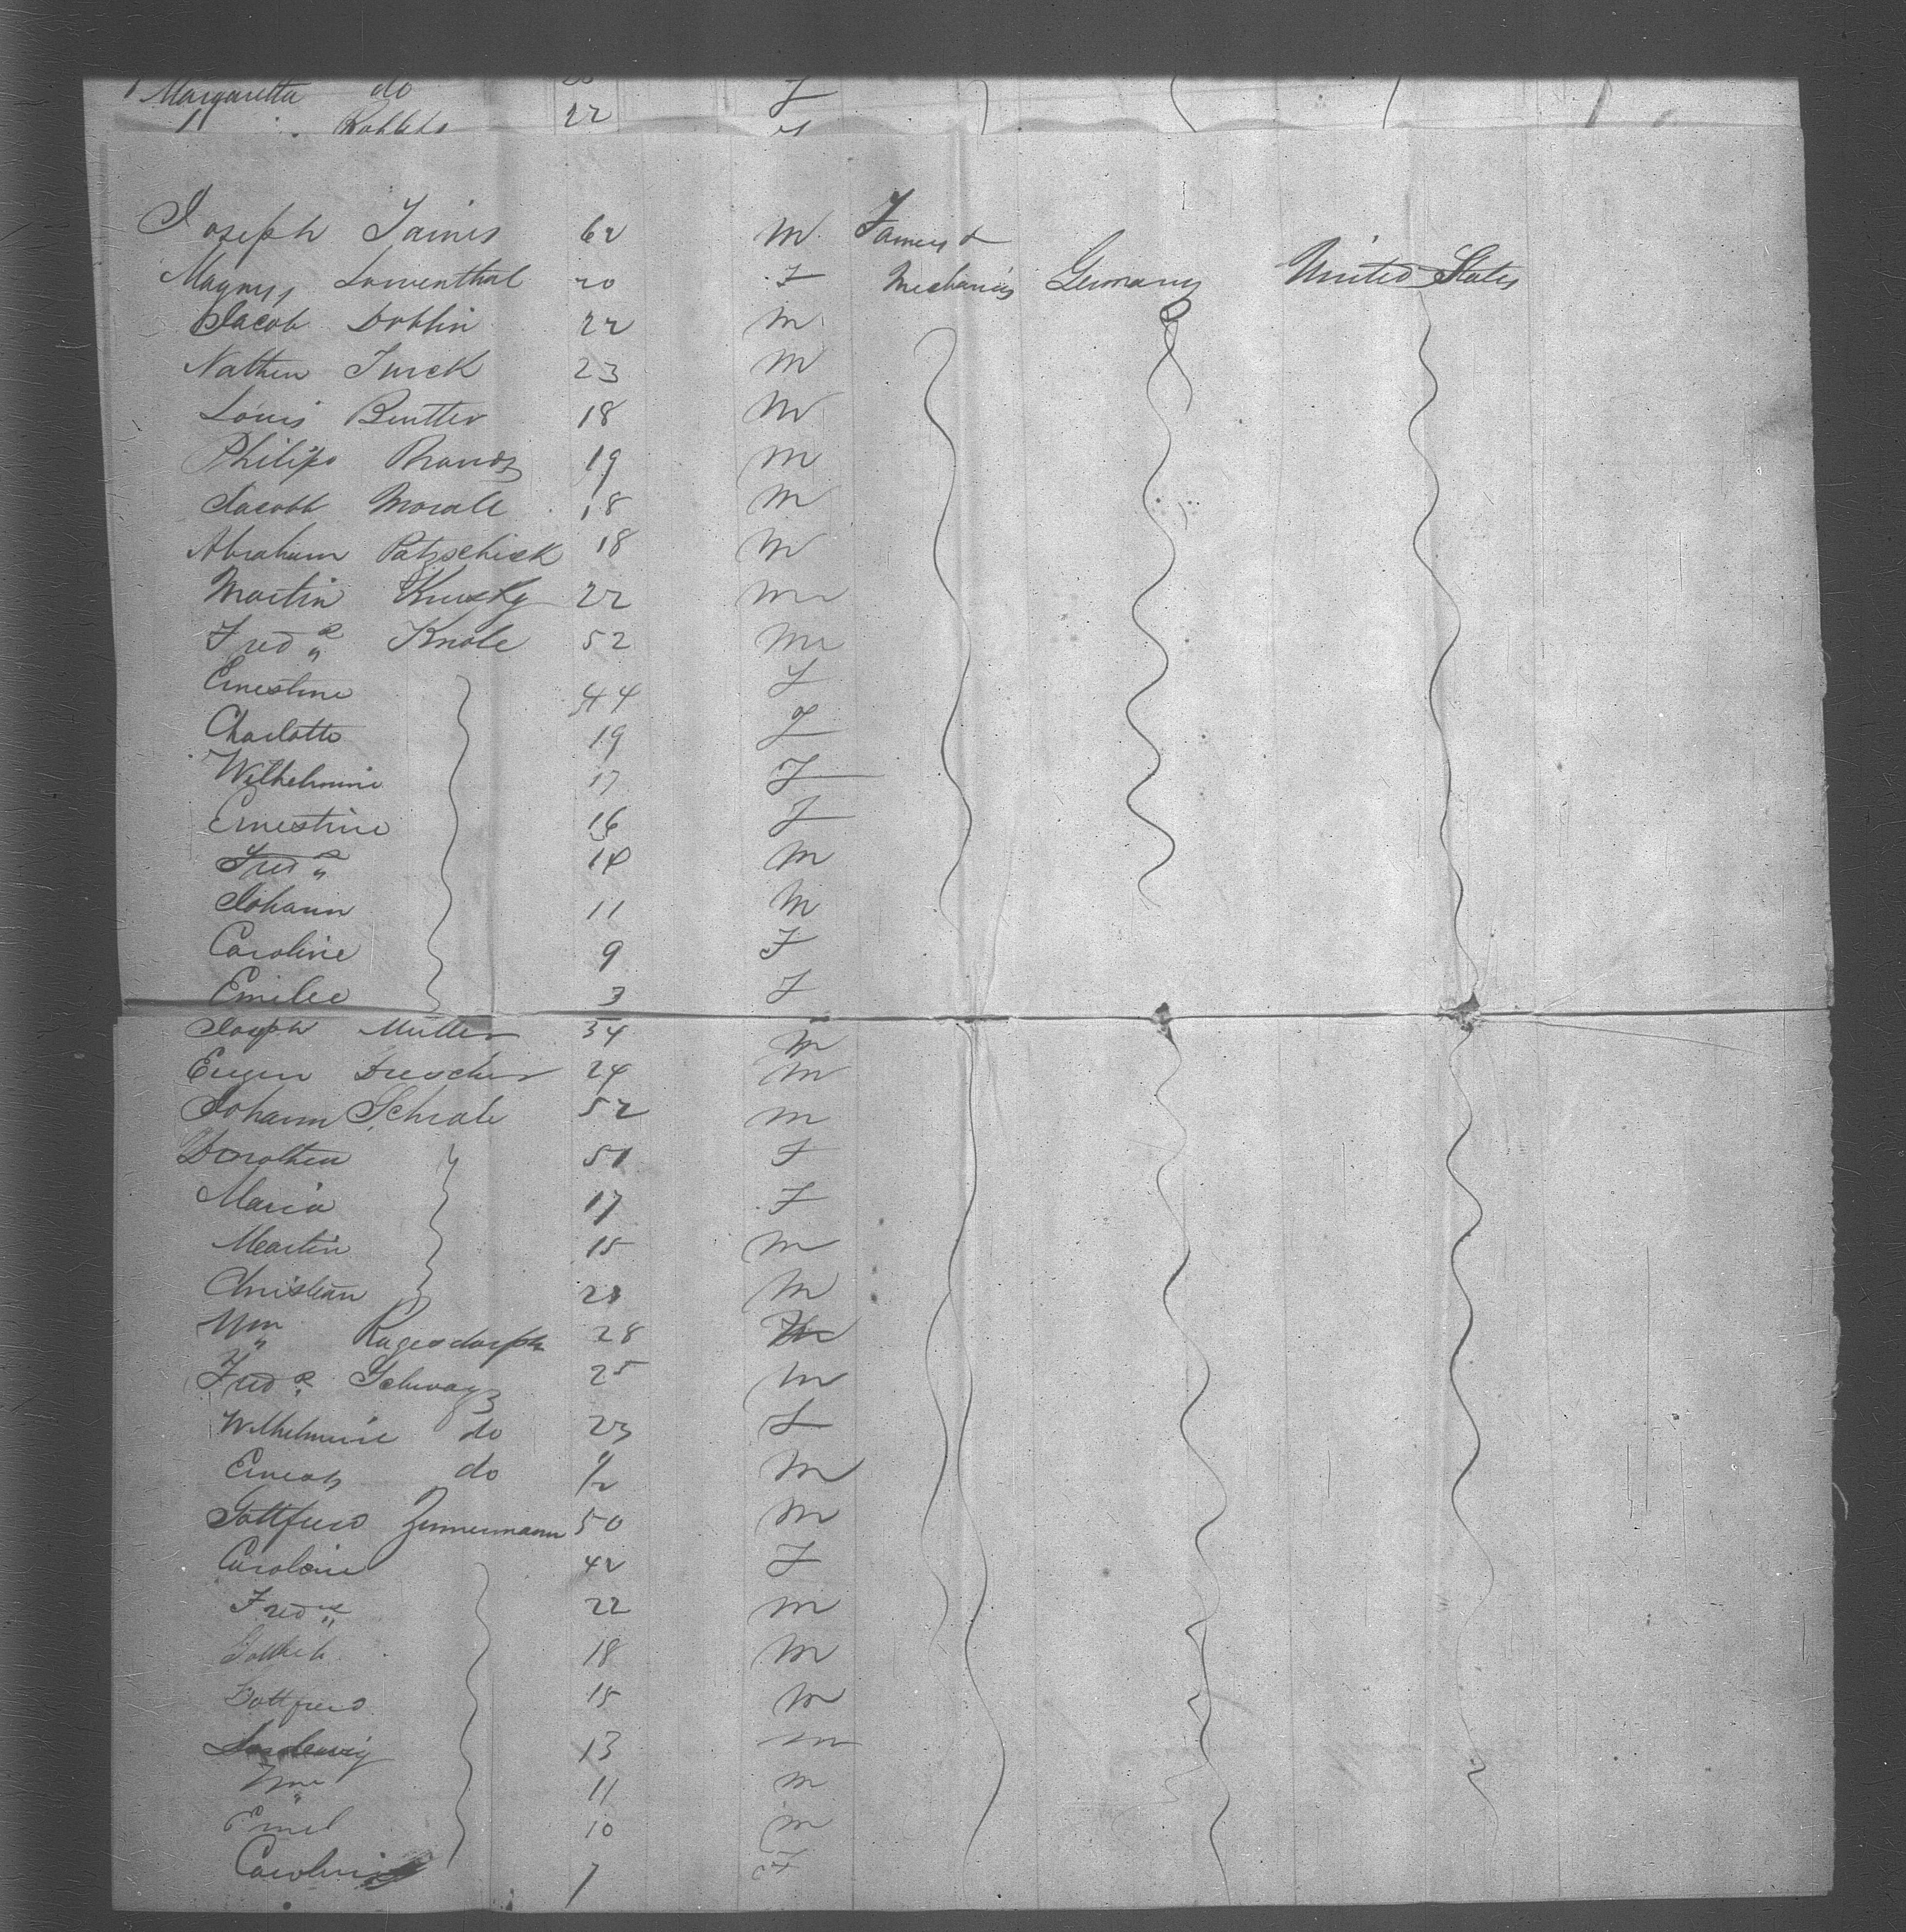 Margaretta do F
22
Joseph 62 M Farmers &
Magnus Lowenthal 20 F Mechanics Germany United States
Jacob Dobblin 22 M
Nathen Turck 23 M
Louis Beutler 18 M
Philipp 19 M
Jacobb Morale 18 M
Abraham Patzschick 18 M
Martin 22 M
Fredk Knole 52 M
Ernestine 44 F
Charlotte 19 F
Wilhelmine 17 F
Ernestine 16 F
Fredk 14 M
Johann 11 M
Caroline 9 F
Emilee 3 F
Joseph Muller 34 M
Eugen Drescher 24 M
Johann Schrale 52 M
Dorothea 51 F
Maria 17 F
Martin 15 M
Christian M
Wm Rugesdorph 28 M
Fredk Schwarz 25 M
Wilhelmine do 23 F
do 1/2 M
Gottfried Zimmermann 50 M
Caroline 42 F
Fredk 22 M
Gottlieb 18 M
Gottfried 15 M
13 M
Wm 11 M
Emil 10 M
Caroline F